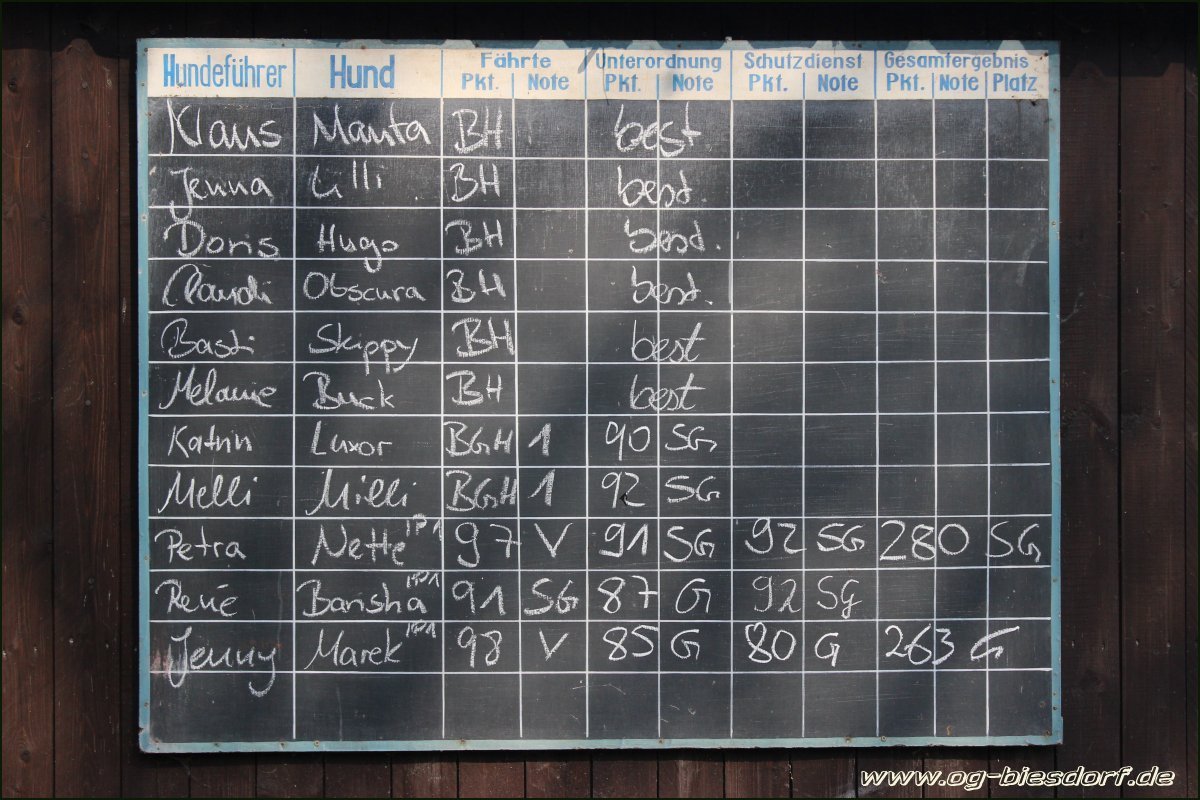 Hundeführer Hund Fährte Unterordnung Schutzdienst Gesamtergebnis
Pkt. Note Pkt. Note Pkt. Note Pkt. Note Platz
Klaus Manta BH best
Jenna Lilli BH best.
Doris Hugo BH best.
Claudi Obscura BH best.
Basti Skippy BH best
Melanie Buck BH best
Katrin Luxor BGH 1 90 SG
Melli Milli BGH 1 92 SG
Petra Nette IP1 97 V 91 SG 92 SG 280 SG
René Bansha IP1 91 SG 87 G 92 SG
Jenny Marek IP1 98 V 85 G 80 G 263 G
www.og-biesdorf.de